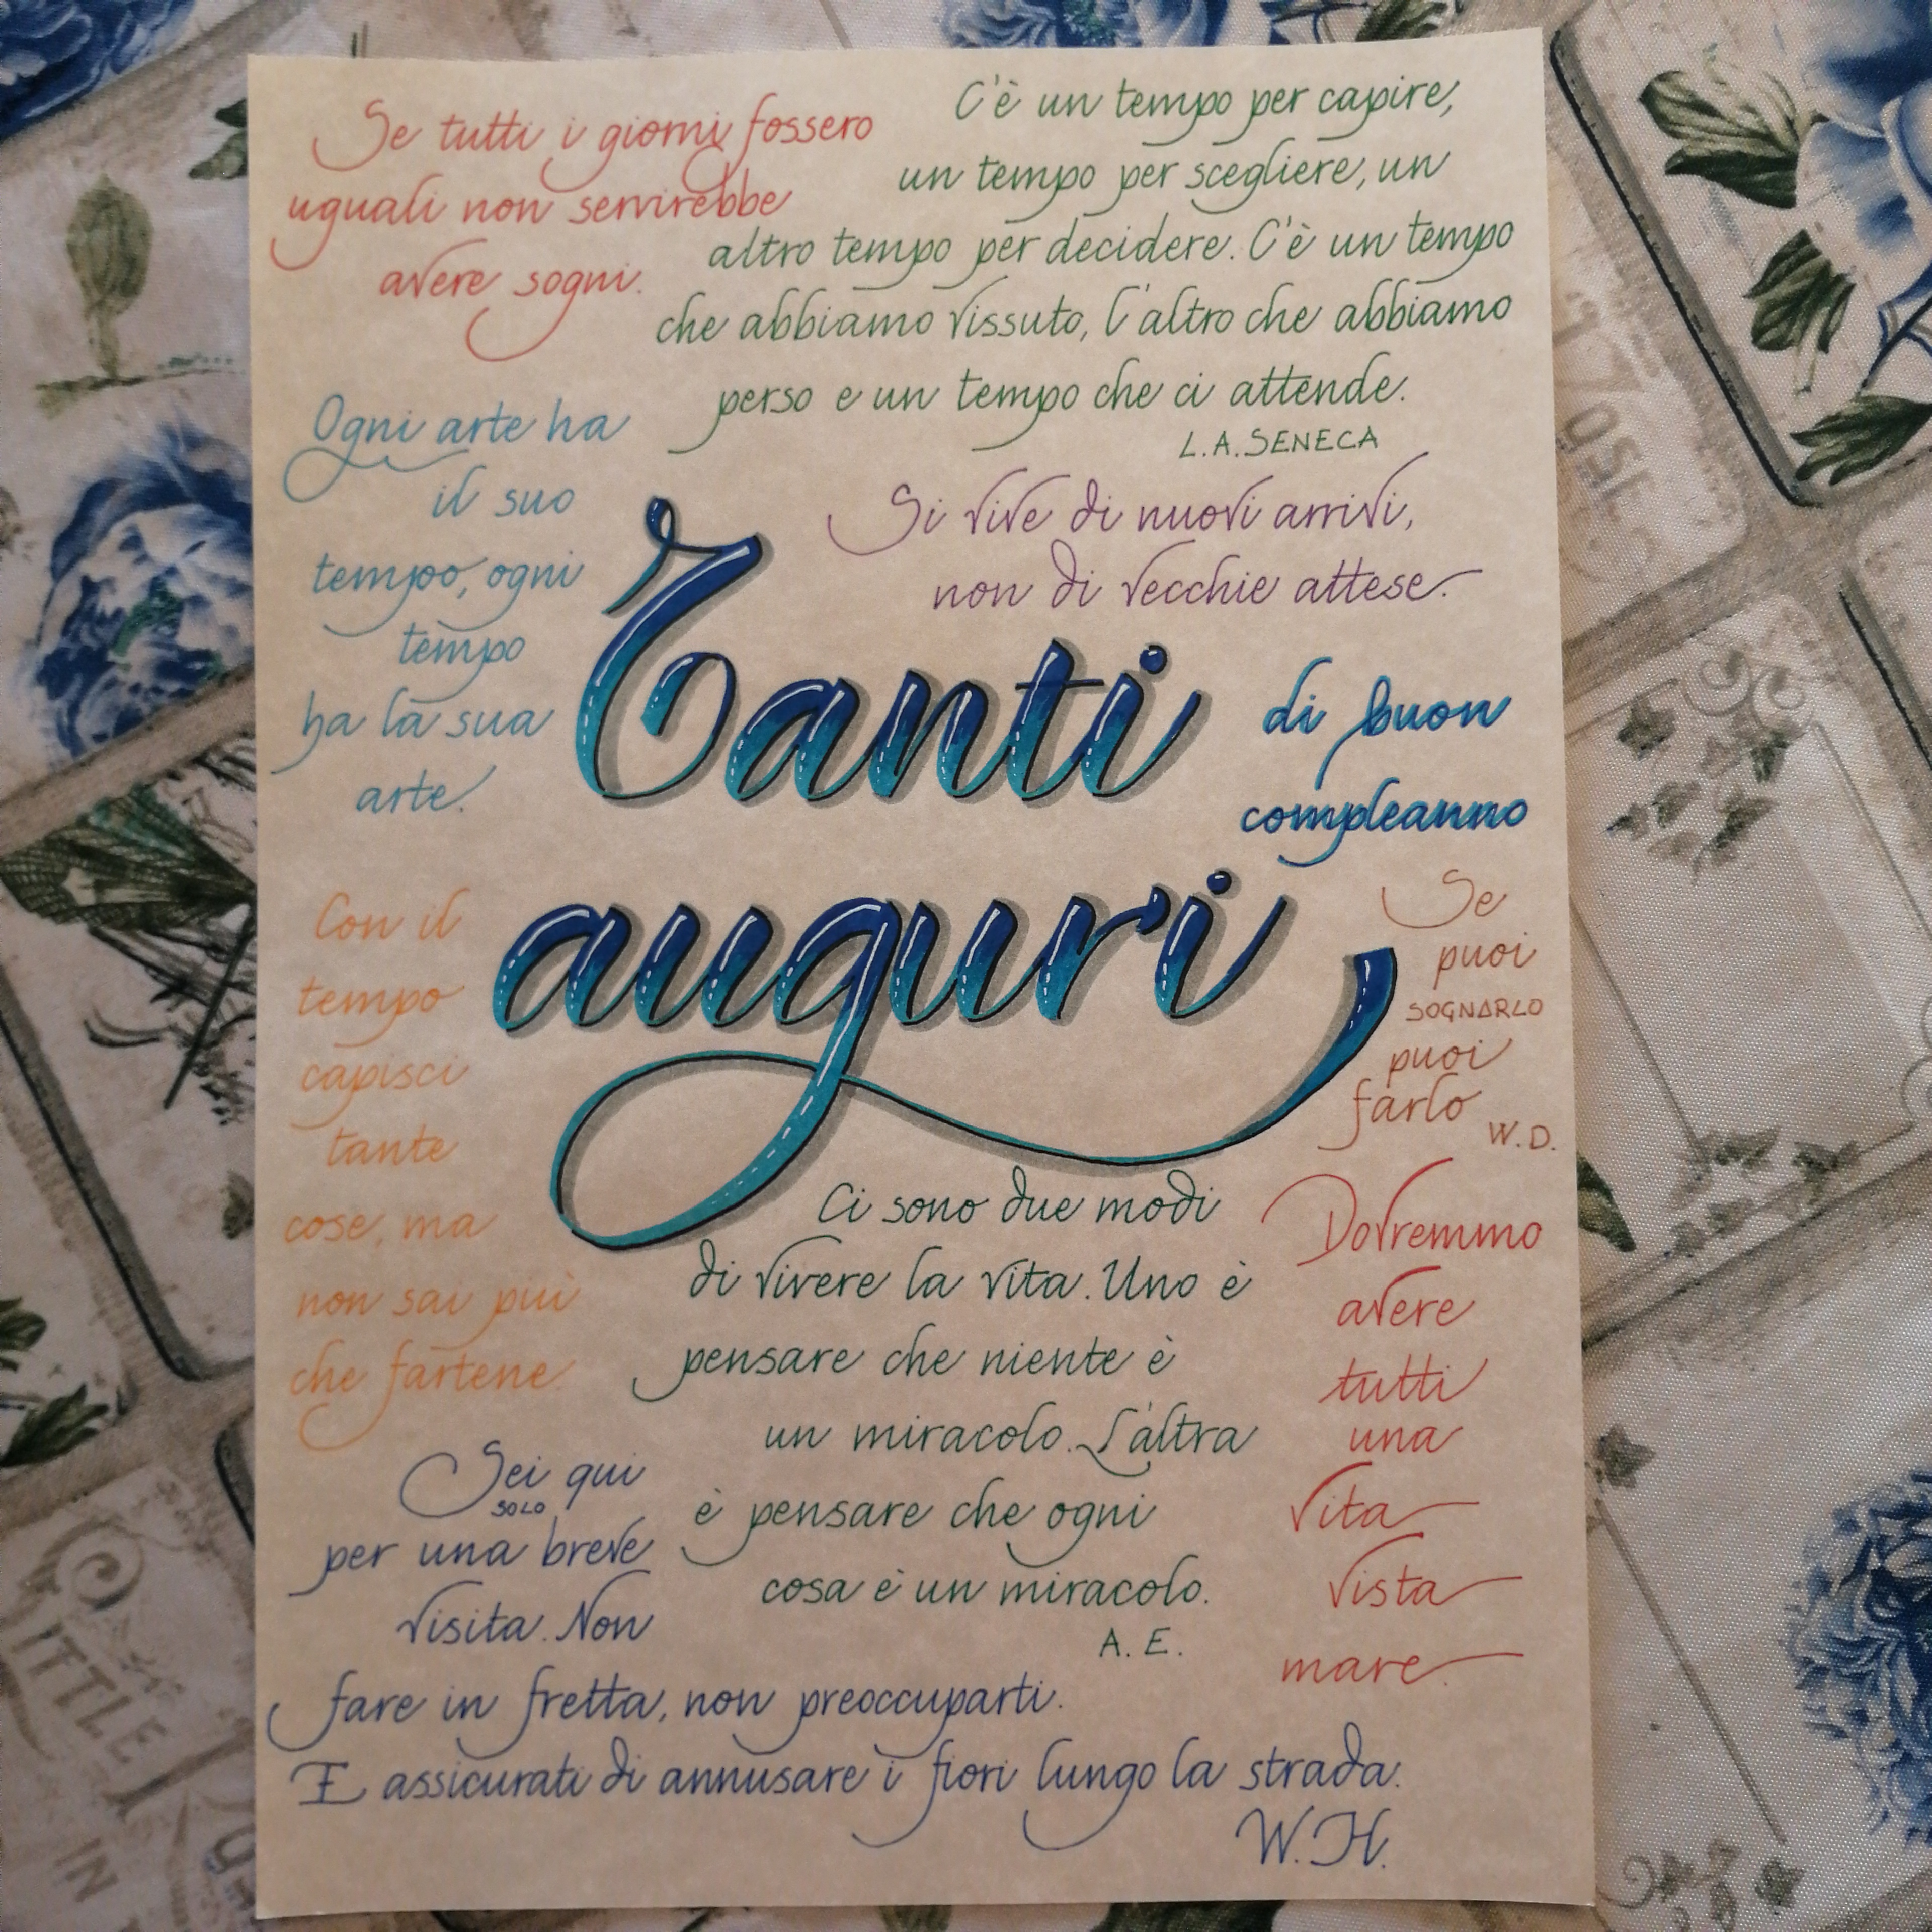 Se tutti i giorni fossero
uguali non servirebbe
avere sogni.
C'è un tempo per capire,
un tempo per scegliere, un
altro tempo per decidere. C'è un tempo
che abbiamo vissuto, l'altro che abbiamo
perso e un tempo che ci attende.
L.A. SENECA
Ogni arte ha
il suo
tempo, ogni
tempo
ha la sua
arte.
Si vive di nuovi arrivi,
non di vecchie attese.
Tanti
auguri
di buon
compleanno
Con il
tempo
capisci
tante
cose, ma
non sai più
che fartene.
Se
puoi
SOGNARLO
puoi
farlo
W.D.
Ci sono due modi
di vivere la vita. Uno è
pensare che niente è
un miracolo. L'altra
è pensare che ogni
cosa è un miracolo.
A. E.
Dovremmo
avere
tutti
una
vita
vista
mare.
Sei qui
solo
per una breve
visita. Non
fare in fretta, non preoccuparti.
E assicurati di annusare i fiori lungo la strada.
W.H.
ITTLE
IN